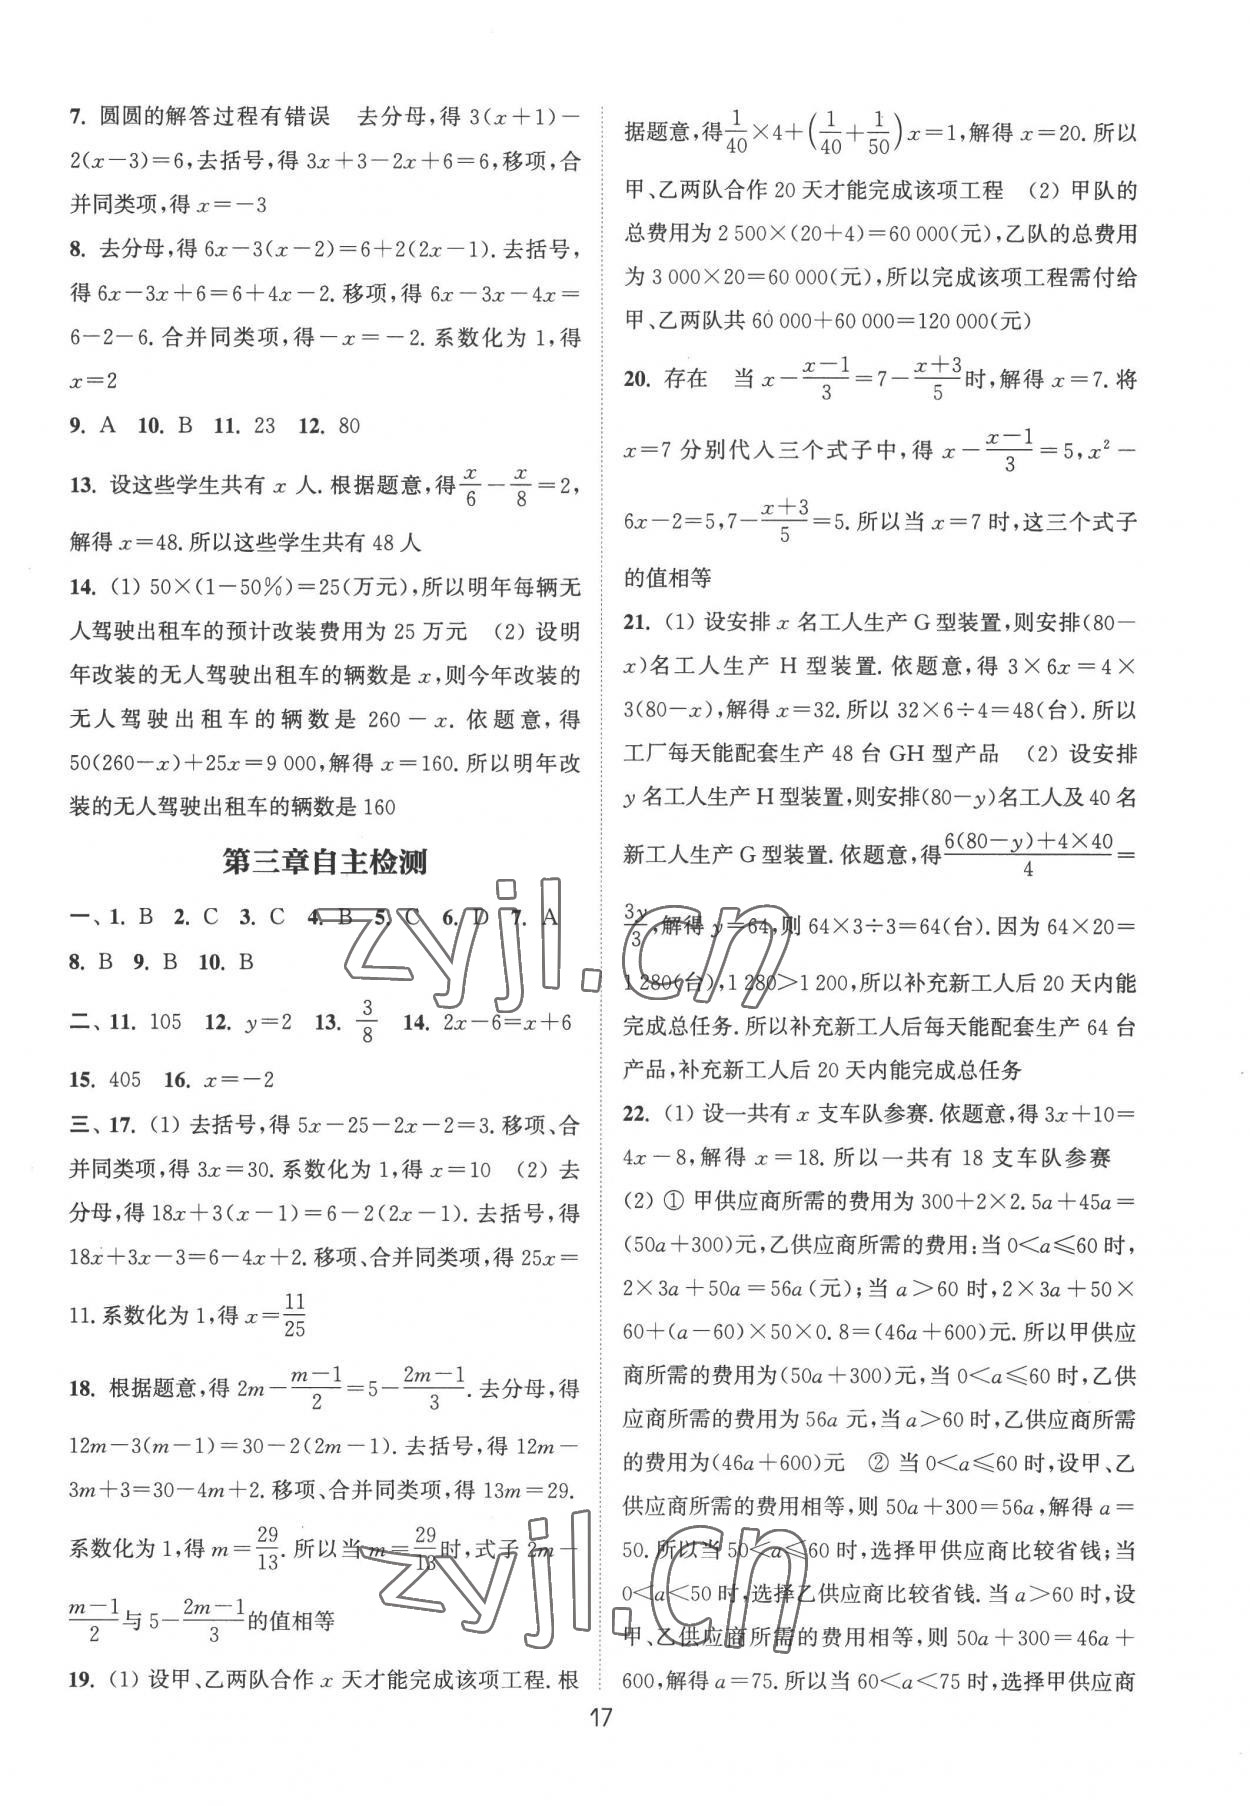 7. 圆圆的解答过程有错误　去分母,得 3(x+1)-
2(x-3)=6,去括号,得 3x+3-2x+6=6,移项,合
并同类项,得 x=-3
8. 去分母,得 6x-3(x-2)=6+2(2x-1).去括号,
得 6x-3x+6=6+4x-2.移项,得 6x-3x-4x=
6-2-6.合并同类项,得-x=-2.系数化为 1,得
x=2
9. A　10. B　11. 23　12. 80
13. 设这些学生共有 x 人.根据题意,得x/6-x/8=2,
解得 x=48.所以这些学生共有 48 人
14. (1) 50×(1-50%)=25(万元),所以明年每辆无
人驾驶出租车的预计改装费用为 25 万元　(2) 设明
年改装的无人驾驶出租车的辆数是 x,则今年改装的
无人驾驶出租车的辆数是 260-x.依题意,得
50(260-x)+25x=9 000,解得 x=160.所以明年改
装的无人驾驶出租车的辆数是 160
第三章自主检测
一、1. B　2. C　3. C　4. B　5. C　6. D　7. A
8. B　9. B　10. B
二、11. 105　12. y=2　13. 3/8　14. 2x-6=x+6
15. 405　16. x=-2
三、17. (1) 去括号,得 5x-25-2x-2=3.移项、合
并同类项,得 3x=30.系数化为 1,得 x=10　(2) 去
分母,得 18x+3(x-1)=6-2(2x-1).去括号,得
18x+3x-3=6-4x+2.移项、合并同类项,得 25x=
11.系数化为 1,得 x=11/25
18. 根据题意,得 2m-(m-1)/2=5-(2m-1)/3.去分母,得
12m-3(m-1)=30-2(2m-1).去括号,得 12m-
3m+3=30-4m+2.移项、合并同类项,得 13m=29.
系数化为 1,得 m=29/13.所以当 m=29/13时,式子 2m-
(m-1)/2与 5-(2m-1)/3的值相等
19. (1) 设甲、乙两队合作 x 天才能完成该项工程.根
据题意,得1/40×4+(1/40+1/50)x=1,解得 x=20.所以
甲、乙两队合作 20 天才能完成该项工程　(2) 甲队的
总费用为 2 500×(20+4)=60 000(元),乙队的总费用
为 3 000×20=60 000(元),所以完成该项工程需付给
甲、乙两队共 60 000+60 000=120 000(元)
20. 存在　当 x-(x-1)/3=7-(x+3)/5时,解得 x=7.将
x=7 分别代入三个式子中,得 x-(x-1)/3=5,x²-
6x-2=5,7-(x+3)/5=5.所以当 x=7 时,这三个式子
的值相等
21. (1) 设安排 x 名工人生产 G 型装置,则安排(80-
x)名工人生产 H 型装置.依题意,得 3×6x=4×
3(80-x),解得 x=32.所以 32×6÷4=48(台).所以
工厂每天能配套生产 48 台 GH 型产品　(2) 设安排
y 名工人生产 H 型装置,则安排(80-y)名工人及 40 名
新工人生产 G 型装置.依题意,得(6(80-y)+4×40)/4=
3y/3,解得 y=64,则 64×3÷3=64(台).因为 64×20=
1 280(台),1 280>1 200,所以补充新工人后 20 天内能
完成总任务.所以补充新工人后每天能配套生产 64 台
产品,补充新工人后 20 天内能完成总任务
22. (1) 设一共有 x 支车队参赛.依题意,得 3x+10=
4x-8,解得 x=18.所以一共有 18 支车队参赛
(2) ① 甲供应商所需的费用为 300+2×2.5a+45a=
(50a+300)元,乙供应商所需的费用:当 0<a≤60 时,
2×3a+50a=56a(元);当 a>60 时,2×3a+50×
60+(a-60)×50×0.8=(46a+600)元.所以甲供应
商所需的费用为(50a+300)元,当 0<a≤60 时,乙供
应商所需的费用为 56a 元,当 a>60 时,乙供应商所需
的费用为(46a+600)元　② 当 0<a≤60 时,设甲、乙
供应商所需的费用相等,则 50a+300=56a,解得 a=
50.所以当 50<a≤60 时,选择甲供应商比较省钱;当
0<a<50 时,选择乙供应商比较省钱.当 a>60 时,设
甲、乙供应商所需的费用相等,则 50a+300=46a+
600,解得 a=75.所以当 60<a<75 时,选择甲供应商
17
zyjl.cn
zyjl.cn